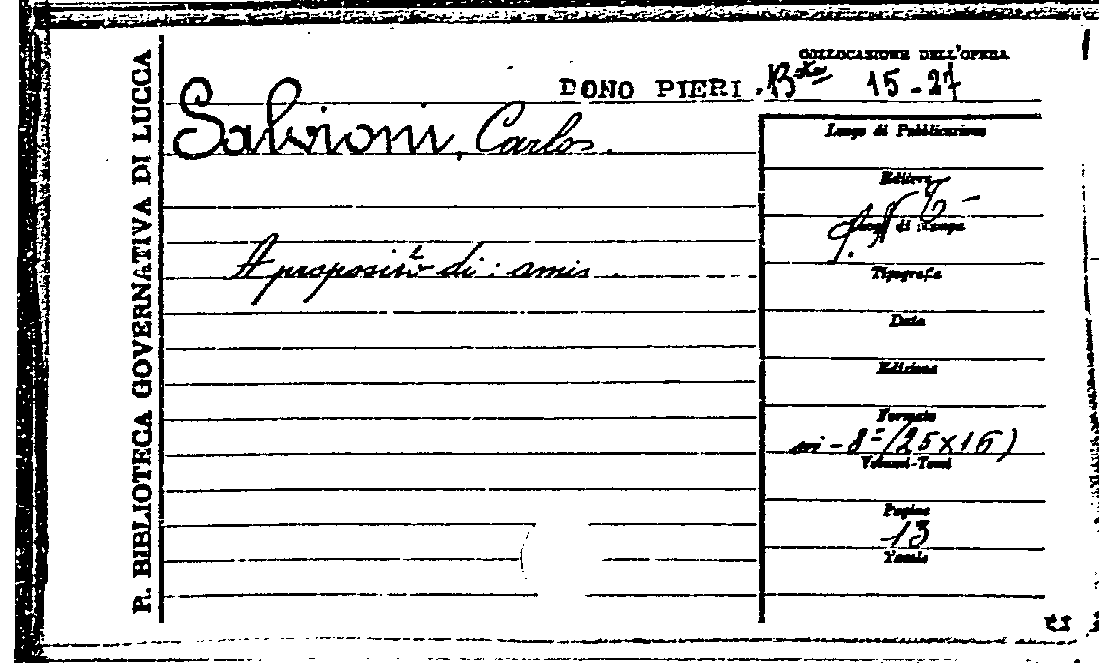 R. BIBLIOTECA GOVERNATIVA DI LUCCA
COLLOCAZIONE DELL'OPERA
DONO PIERI. B.ta 15-27
Salvioni, Carlos.
A proposito di: amis
Luogo di Pubblicazione
Editore
Luogo di Stampa
Tipografia
Data
Edizione
Formato
in-8°(25x16)
Volumi-Tomi
Pagine
13